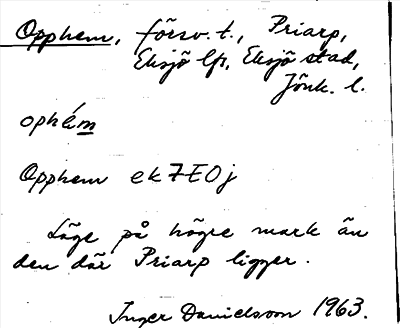 Opphem, försv. t., Priarp,
Eksjö lfs, Eksjö stad,
Jönk. l.
ophém
Opphem ek7E0j
Läge på högre mark än
den där Priarp ligger.
Inger Danielsson 1963.